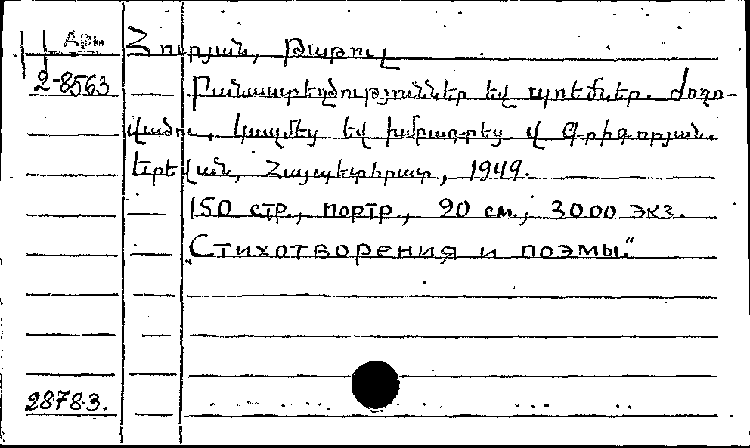 Арм
2-8563
Հուրյան, Թաթուլ
Բանաստեղծություններ եվ պոեմներ. Ժողո-
վածու, կազմեց եվ խմբագրեց Վ Գրիգորյան.
Երեվան, Հայպետհրատ, 1949.
150 стр., портр., 20 см., 3000 экз.
„Стихотворения и поэмы."
28783.